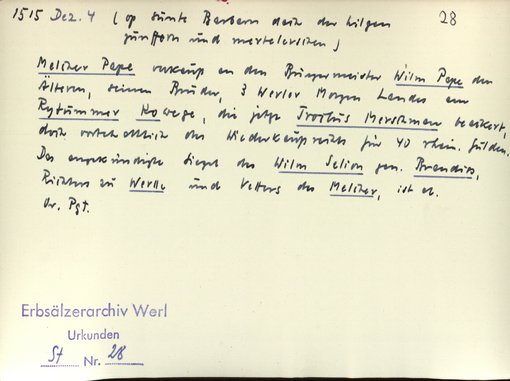 1515 Dez. 4 (op sunte Barbern dach der hilgen
28
junffern und mertelerschen)
Melcher Pape verkauft an den Bürgermeister Wilm Pape den
Älteren, seinen Bruder, 3 Werler Morgen Landes am
Rytummer Kowege, die jetzt Troibus Mersschman beackert,
doch vorbehaltlich des Wiederkaufrechts für 40 rhein. Gulden.
Das angekündigte Siegel des Wilm gen. Brandis,
Richters zu Werll und Vetters des Melcher, ist ab.
Or. Pgt.
Erbsälzerarchiv Werl
Urkunden
St Nr. 28